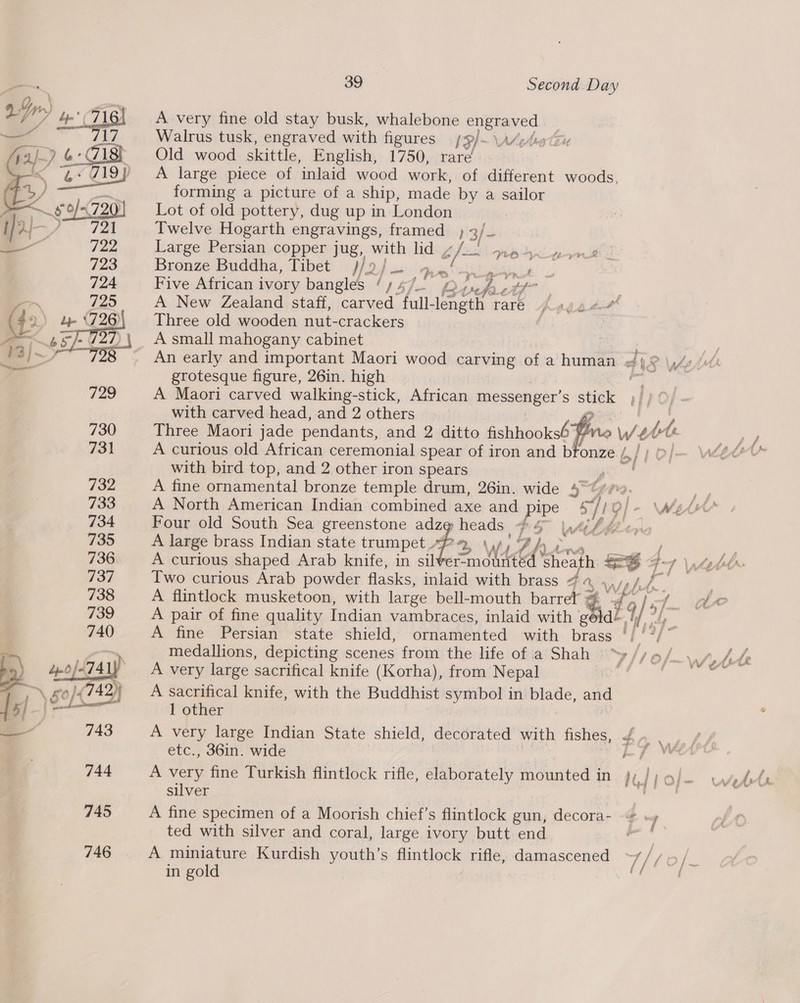 39 Second Day
716 A very fine old stay busk, whalebone engraved
717 Walrus tusk, engraved with figures
718 Old wood skittle, English, 1750, rare
719 A large piece of inlaid wood work, of different woods,
forming a picture of a ship, made by a sailor
720 Lot of old pottery, dug up in London
721 Twelve Hogarth engravings, framed
722 Large Persian copper jug, with lid
723 Bronze Buddha, Tibet
724 Five African ivory bangles
725 A New Zealand staff, carved full-length rare
726 Three old wooden nut-crackers
727 A small mahogany cabinet
728 An early and important Maori wood carving of a human
grotesque figure, 26in. high
729 A Maori carved walking-stick, African messenger's stick
with carved head, and 2 others
730 Three Maori jade pendants, and 2 ditto fishhooks
731 A curious old African ceremonial spear of iron and bronze
with bird top, and 2 other iron spears
732 A fine ornamental bronze temple drum, 26in. wide
733 A North American Indian combined axe and pipe
734 Four old South Sea greenstone adze heads
735 A large brass Indian state trumpet
736 A curious shaped Arab knife, in silver-mounted sheath
737 Two curious Arab powder flasks, inlaid with brass
738 A flintlock musketoon, with large bell-mouth barrel
739 A pair of fine quality Indian vambraces, inlaid with gold
740 A fine Persian state shield, ornamented with brass
medallions, depicting scenes from the life of a Shah
741 A very large sacrifical knife (Korha), from Nepal
742 A sacrifical knife, with the Buddhist symbol in blade, and
1 other
743 A very large Indian State shield, decorated with fishes,
etc., 36in. wide
744 A very fine Turkish flintlock rifle, elaborately mounted in
silver
745 A fine specimen of a Moorish chief's flintlock gun, decora-
ted with silver and coral, large ivory butt end
746 A miniature Kurdish youth's flintlock rifle, damascened
in gold